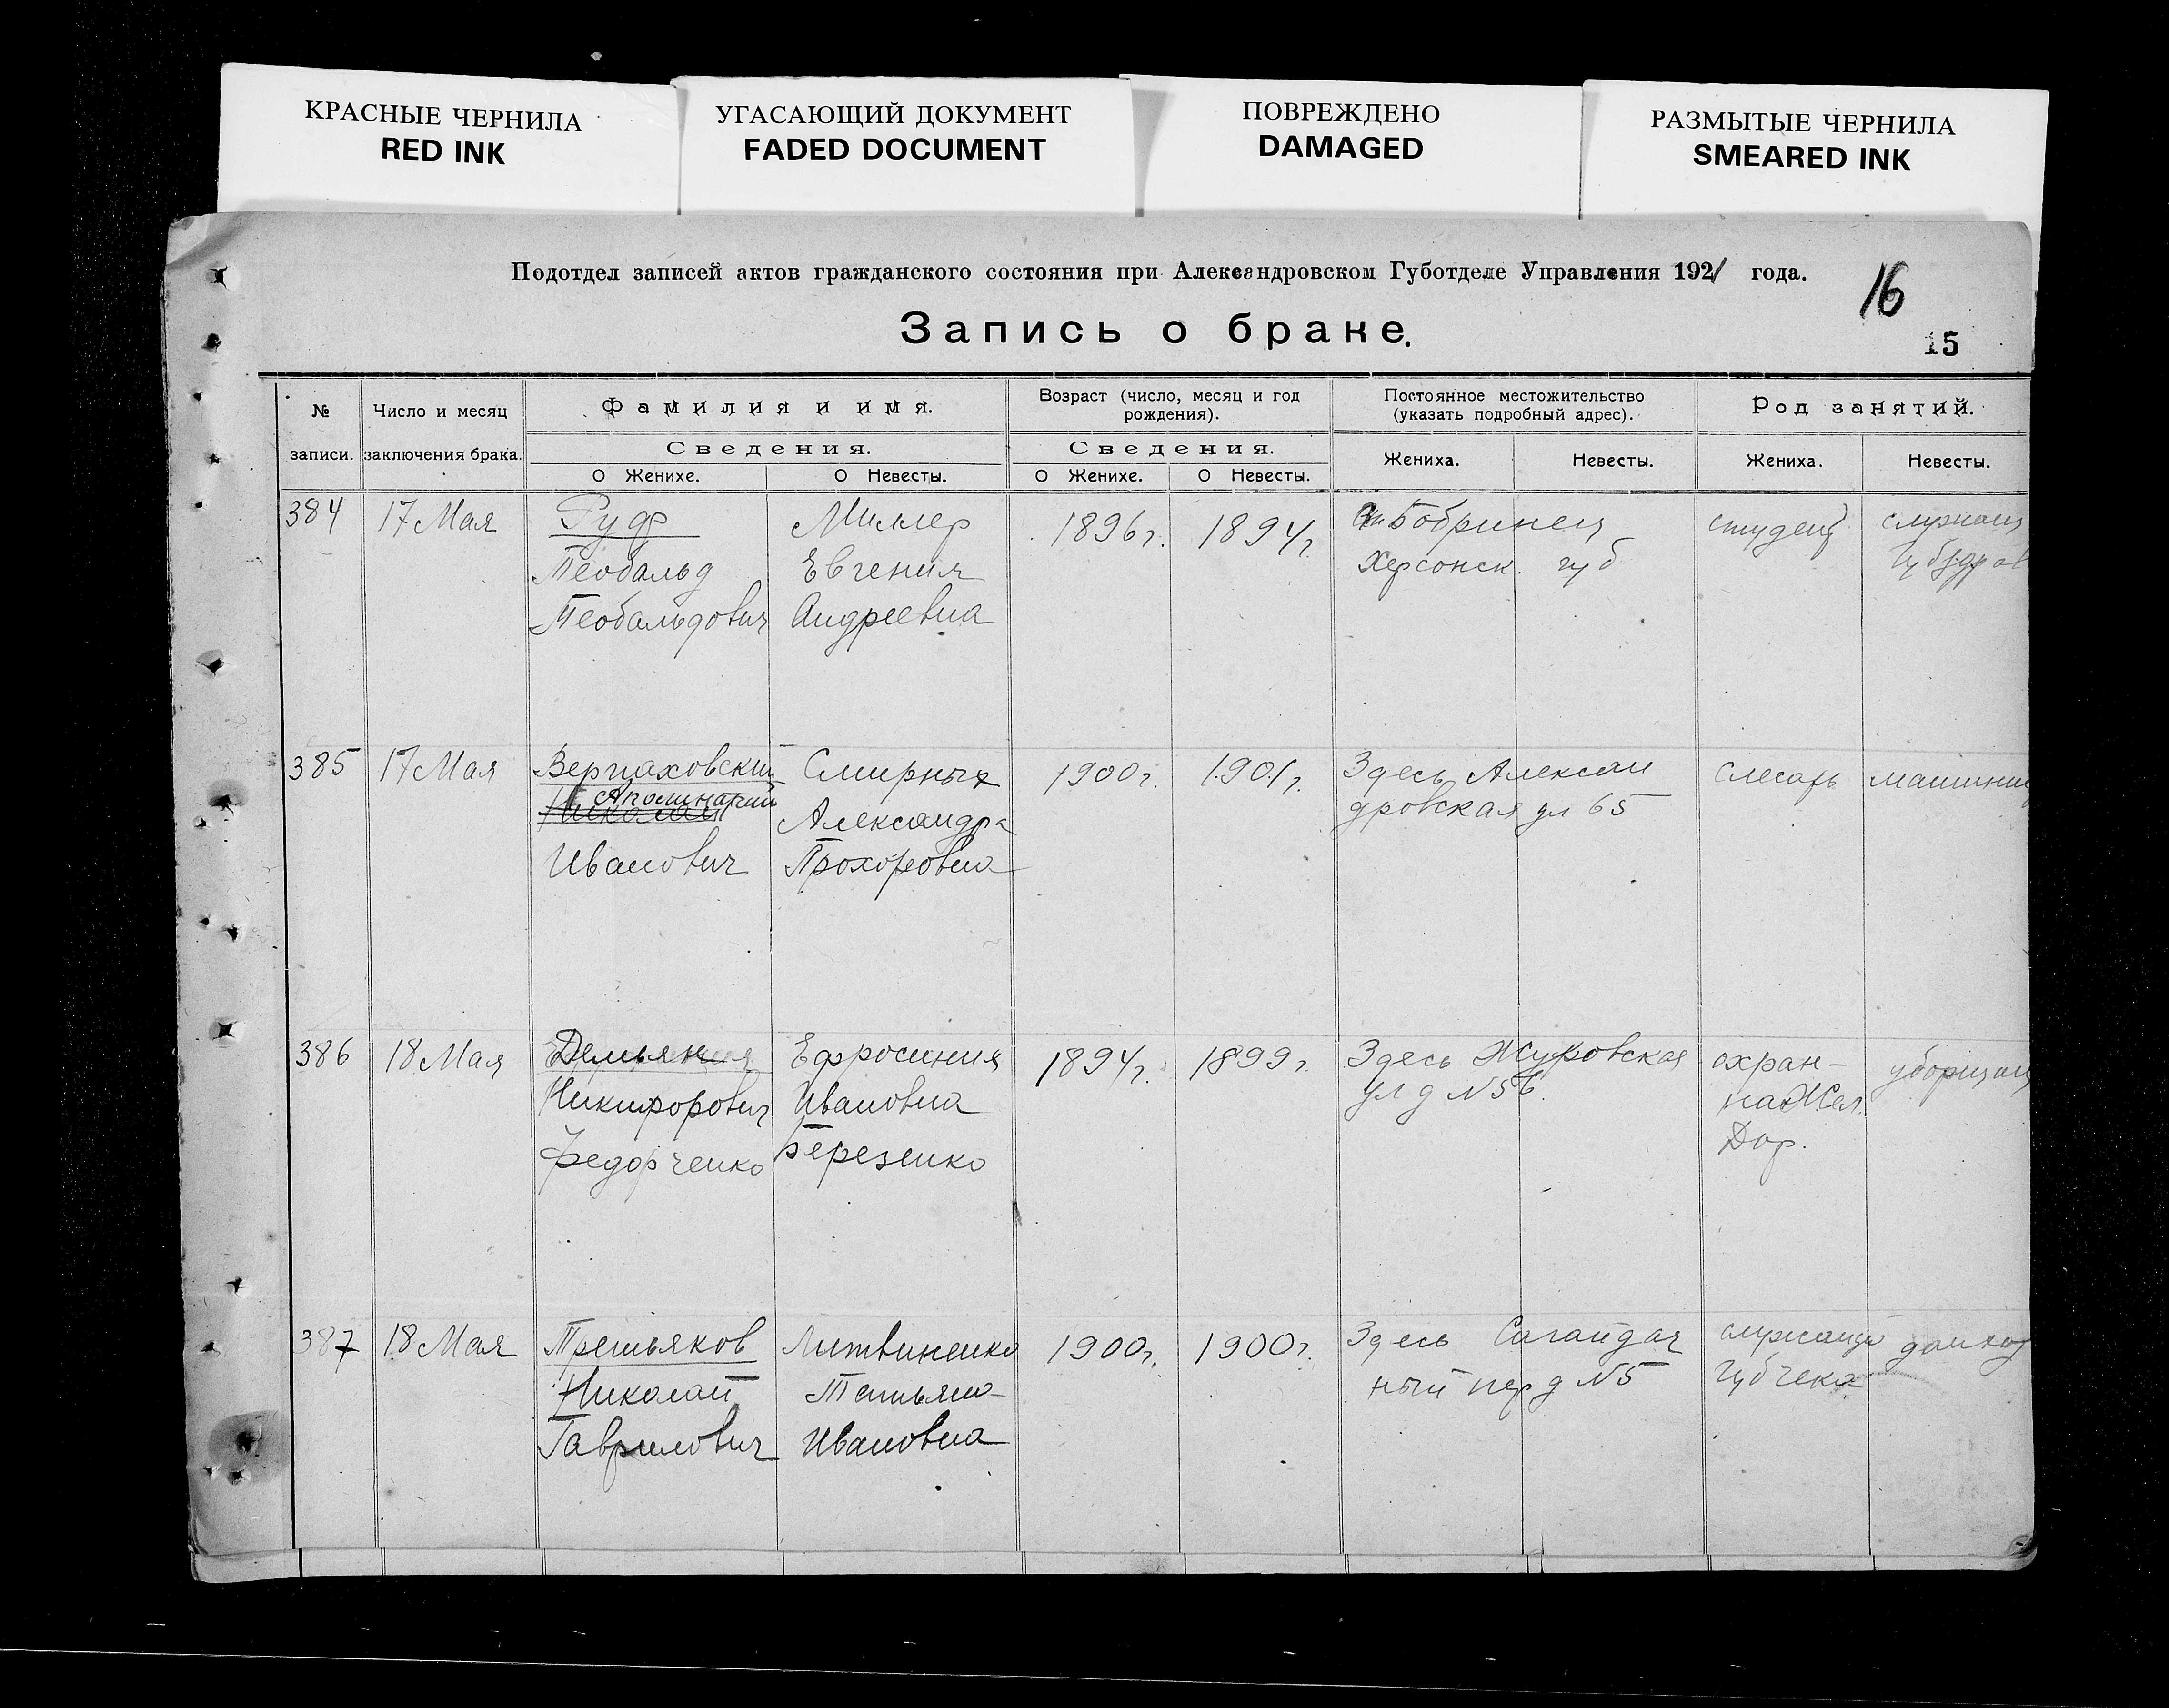 КРАСНЫЕ ЧЕРНИЛА
RED INK
УГАСАЮЩИЙ ДОКУМЕНТ
FADED DOCUMENT
ПОВРЕЖДЕНО
DAMAGED
РАЗМЫТЫЕ ЧЕРНИЛА
SMEARED INK
Подотдел записей актов гражданского состояния при Александровском Губотделе Управления 1921 года.
16
Запись о браке.
15
№ записи.
Число и месяц заключения брака.
Фамилия и имя.
Сведения.
О Женихе.
О Невесты.
Возраст (число, месяц и год рождения).
Сведения.
О Женихе.
О Невесты.
Постоянное местожительство (указать подробный адрес).
Жениха.
Невесты.
Род занятий.
Жениха.
Невесты.
384
17 Мая
Руф
Теобальд
Теобальдович
Миллер
Евгения
Андреевна
1896 г.
1894 г.
Бобринец
Херсонск. губ
студент
служащ
Губздрав
385
17 Мая
Верцаховский
Аполинарий
Николай
Иванович
Смирных
Александра
Прохоровна
1900 г.
1901 г.
Здесь Алексан
дровская ул 65
слесарь
машинис
386
18 Мая
Демьян
Никифорович
Федорченко
Ефросиния
Ивановна
Березенко
1894 г.
1899 г.
Здесь Жуковская
ул д N 56
охран-
на Жел.
Дор.
уборщиц
387
18 Мая
Третьяков
Николай
Гаврилович
Литвиненко
Татьяна
Ивановна
1900 г.
1900 г.
Здесь Сагайдач
ный пер д N5
служащий
Губчека
домхоз